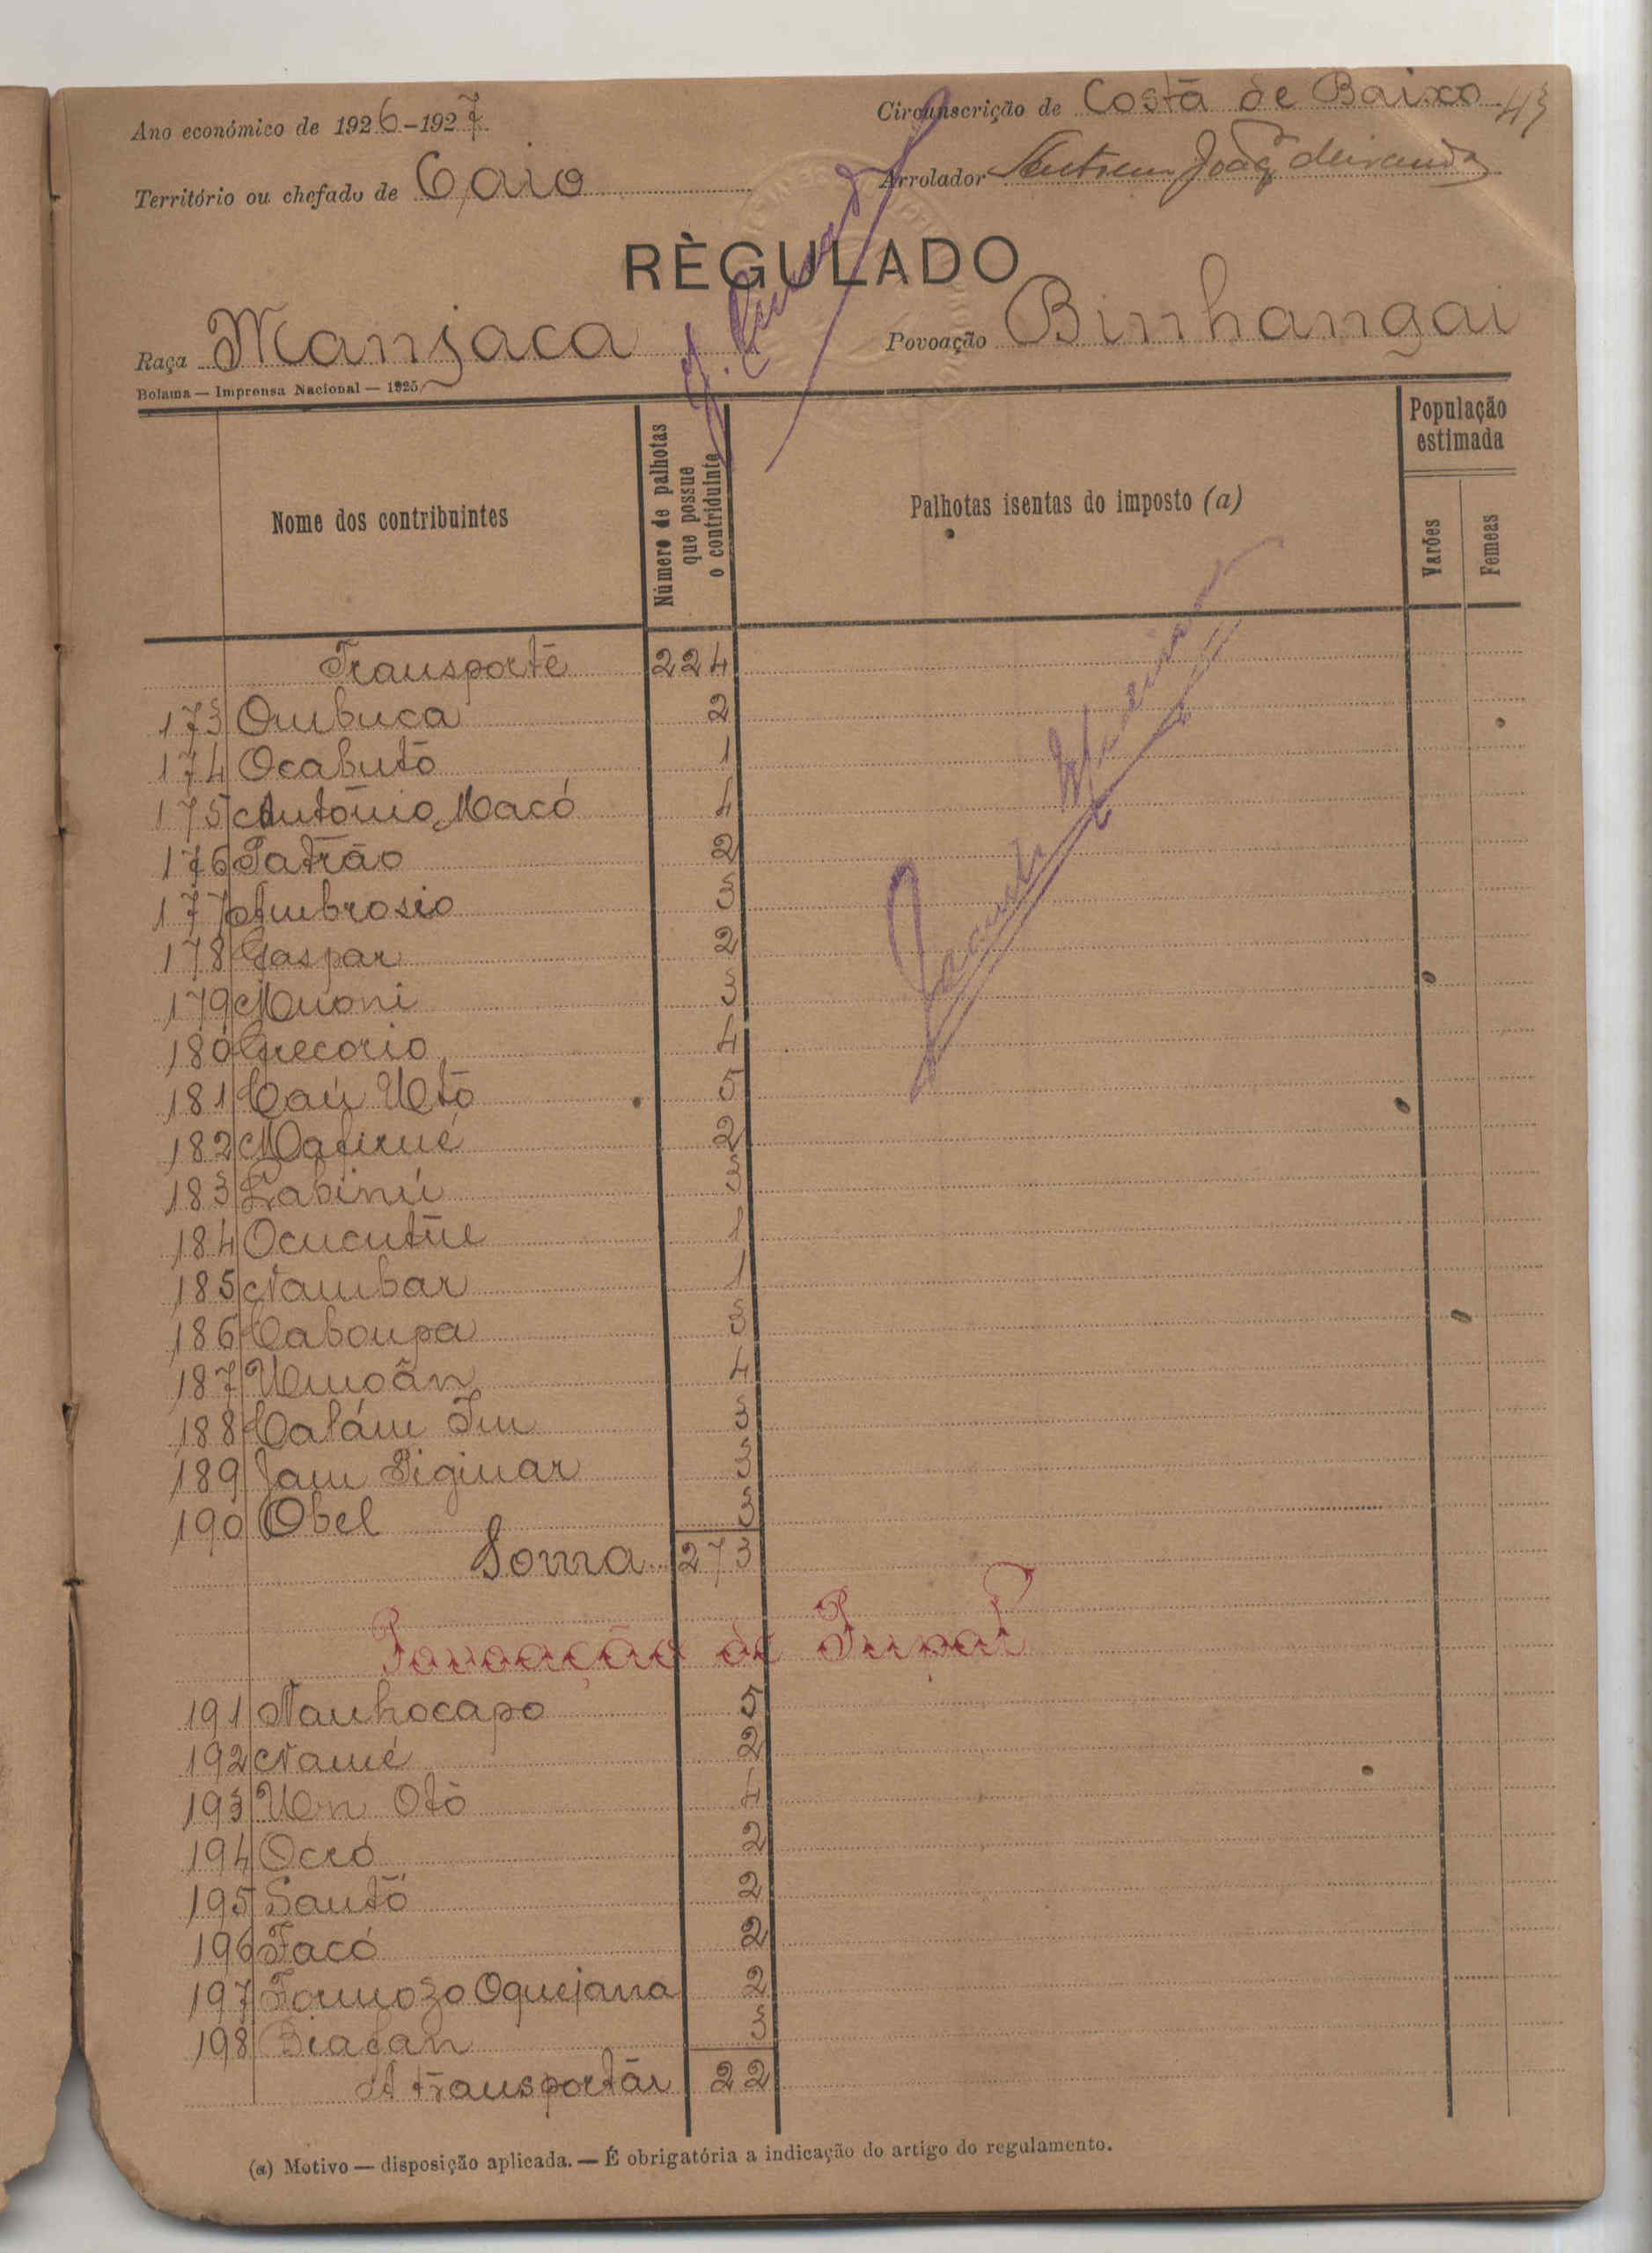 Ano económico de 1926-1927
Circunscrição de Costa de Baixo 43
Território ou chefado de Caió
Arrolador João
RÈGULADO
Raça Manjaca
Povoação Binhangai
Bolama — Imprensa Nacional — 1925
Nome dos contribuintes
Número de palhotas que possue o contriduinte
Palhotas isentas do imposto (a)
População estimada
Varões
Femeas
Transporte 224
173 Oubuca 2
174 Ocabutō 1
175 António Macó 4
176 Patrão 2
177 Ambrosio 3
178 Gaspar 2
179 Muoni 3
180 Grecorio 4
181 Caú Utō 5
182 Mafirué 2
183 Labinú 3
184 Ocucutūe 1
185 Nambar 1
186 Caboupa 3
187 Umoân 4
188 Catám Im 3
189 Jam Piginar 3
190 Obel 3
Soma 273
Povoação de
191 Nanhocapo 5
192 Namé 2
193 Un Otō 4
194 Ocró 2
195 Santō 2
196 Facó 2
197 Formozo Oquejana 2
198 Biafan 3
A transportār 22
(a) Motivo — disposição aplicada. — É obrigatória a indicação do artigo do regulamento.